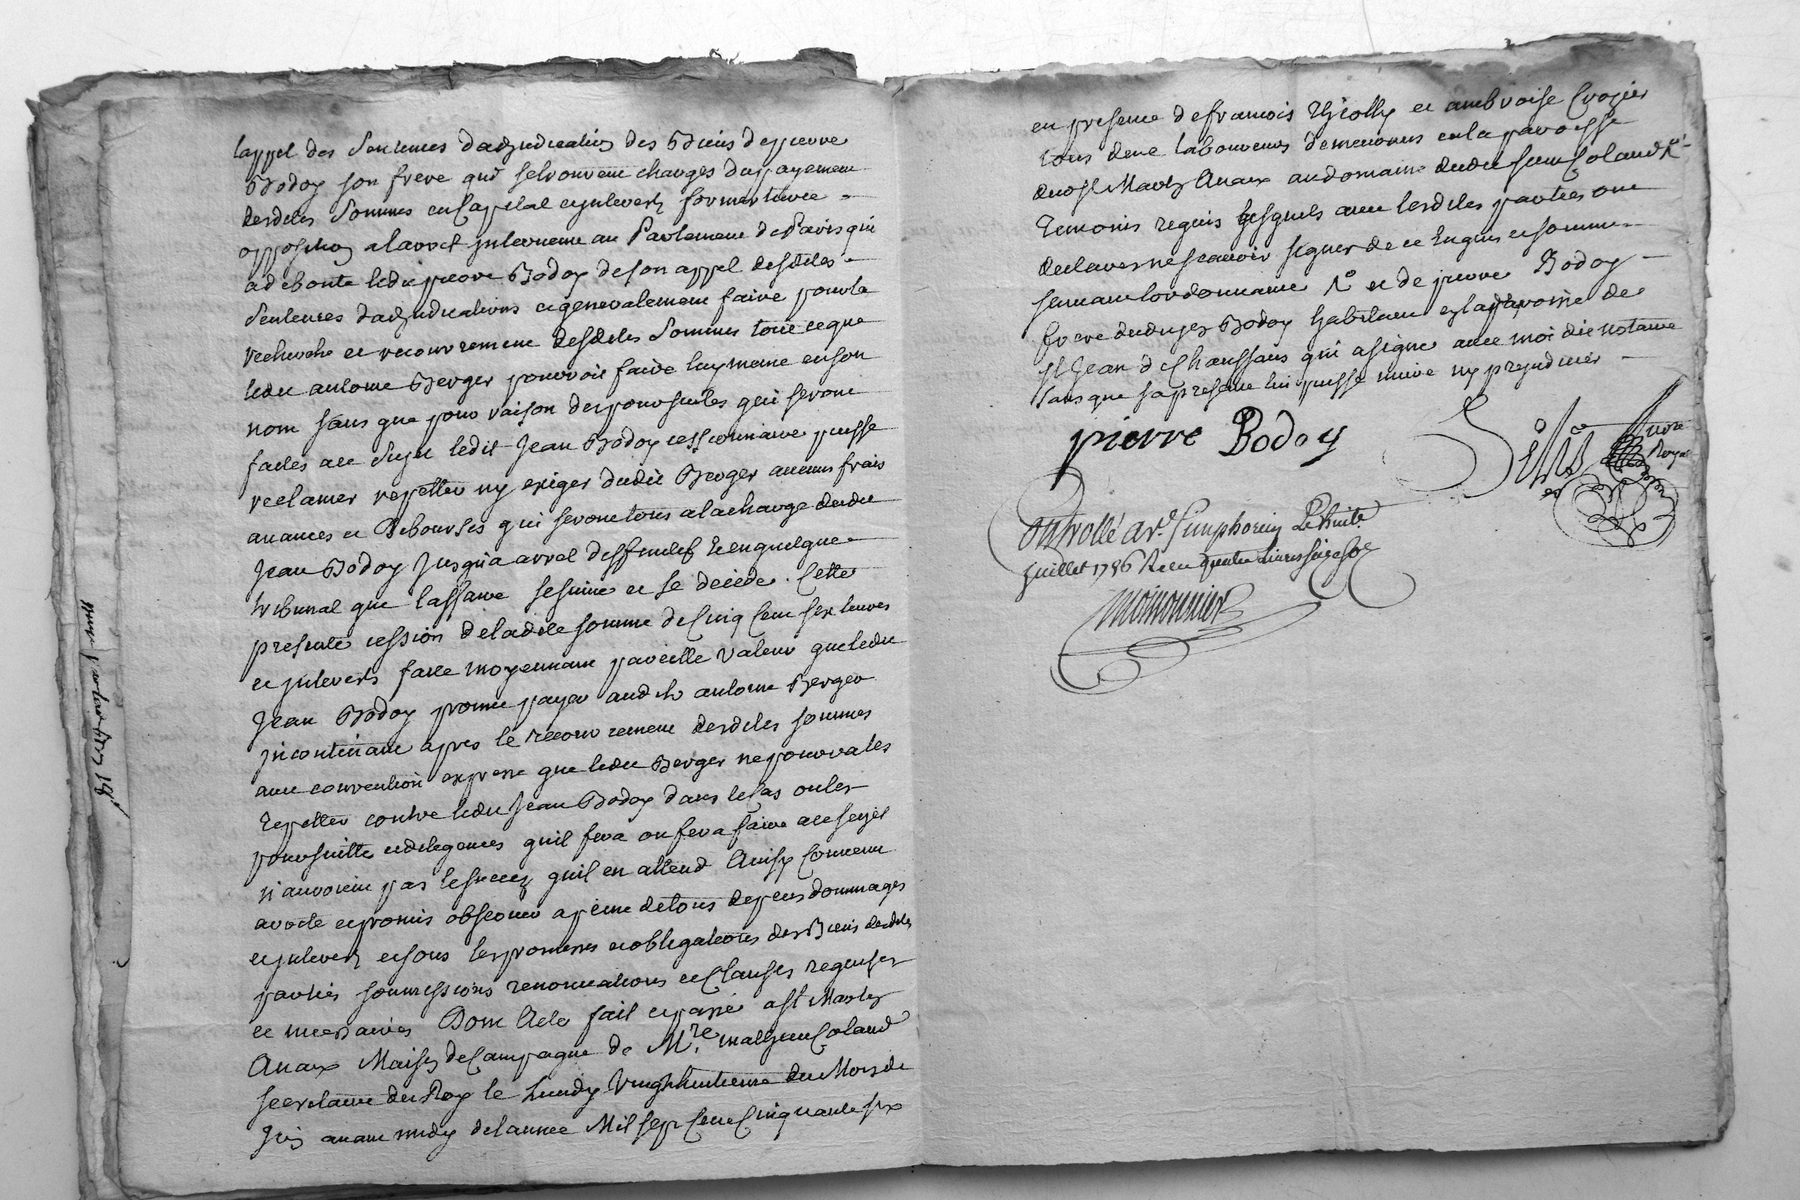 lappel des Sentences dadjudication des Biens de pierre
Bodoy son frere qui se trouvent charges du payement
desdites sommes en Capital et jnterets former tierce
opposition a larret jntervenu au Parlement de Paris qui
a deboute ledit pierre Bodoy de son appel desdites
Sentences dadjudications et generalement faire pour la
recherche et recouvrement desdites Sommes tout ce que
ledit antoine Berger pouvroit faire luy meme en son
nom sans que pour raison des poursuites qui seront
faites a ce Sujet ledit Jean Bodoy cessionnaire puisse
reclamer repetter ny exiger dudit Berger aucuns frais
avances et Debourses qui seront tous a la charge dudit
Jean Bodoy Jusqua arret deffinitif et en quelque
tribunal que laffaire se suive et se decide. Cette
presente cession de ladite somme de Cinq Cent six livres
et jnterets faite moyennant pareille valeur que ledit
Jean Bodoy promit payer audit antoine Berger
jncontinant apres le recouvrement desdites sommes
avec convention expresse que ledit Berger ne pourra les
repetter contre ledit Jean Bodoy dans le Cas ou les
poursuitte et diligences quil fera ou fera faire a ce sujet
n'auroient pas le succez quil en attend Ainsy Convenu
accepte et promis observer a peine de tous depens dommages
et jnterets et sous les promesses et obligations des Biens desdites
parties soumissions renonciations et Clauses requises
et necessaires Dont Acte fait et passé a St Martin
Anaux Maison de Campagne de Mre mathieu Coland
secretaire du Roy le Lundy Vingthuitieme du Mois de
Juin avant midy de lannee Mil sept Cent Cinquante six
en presence de francois Thiolly et ambroise Crozier
tous deux laboureurs demeurans en la paroisse
dudit St Martin Anaux au domaine dudit sieur Coland
temoins requis lesquels avec lesdites parties ont
declarer ne scavoir signer de ce Enquis et sommes
suivant lordonnance et de pierre Bodoy
frere dudit Jean Bodoy habitant en la paroisse de
St Jean de Chaussans qui a signé avec moi dit notaire
sans que sa presence lui puisse nuire ny prejudicier
pierre Bodoy
nore
Royal
Controllé a St Simphorien Le huit
juillet 1756 Recu quatre livres seize sols
moinonnier